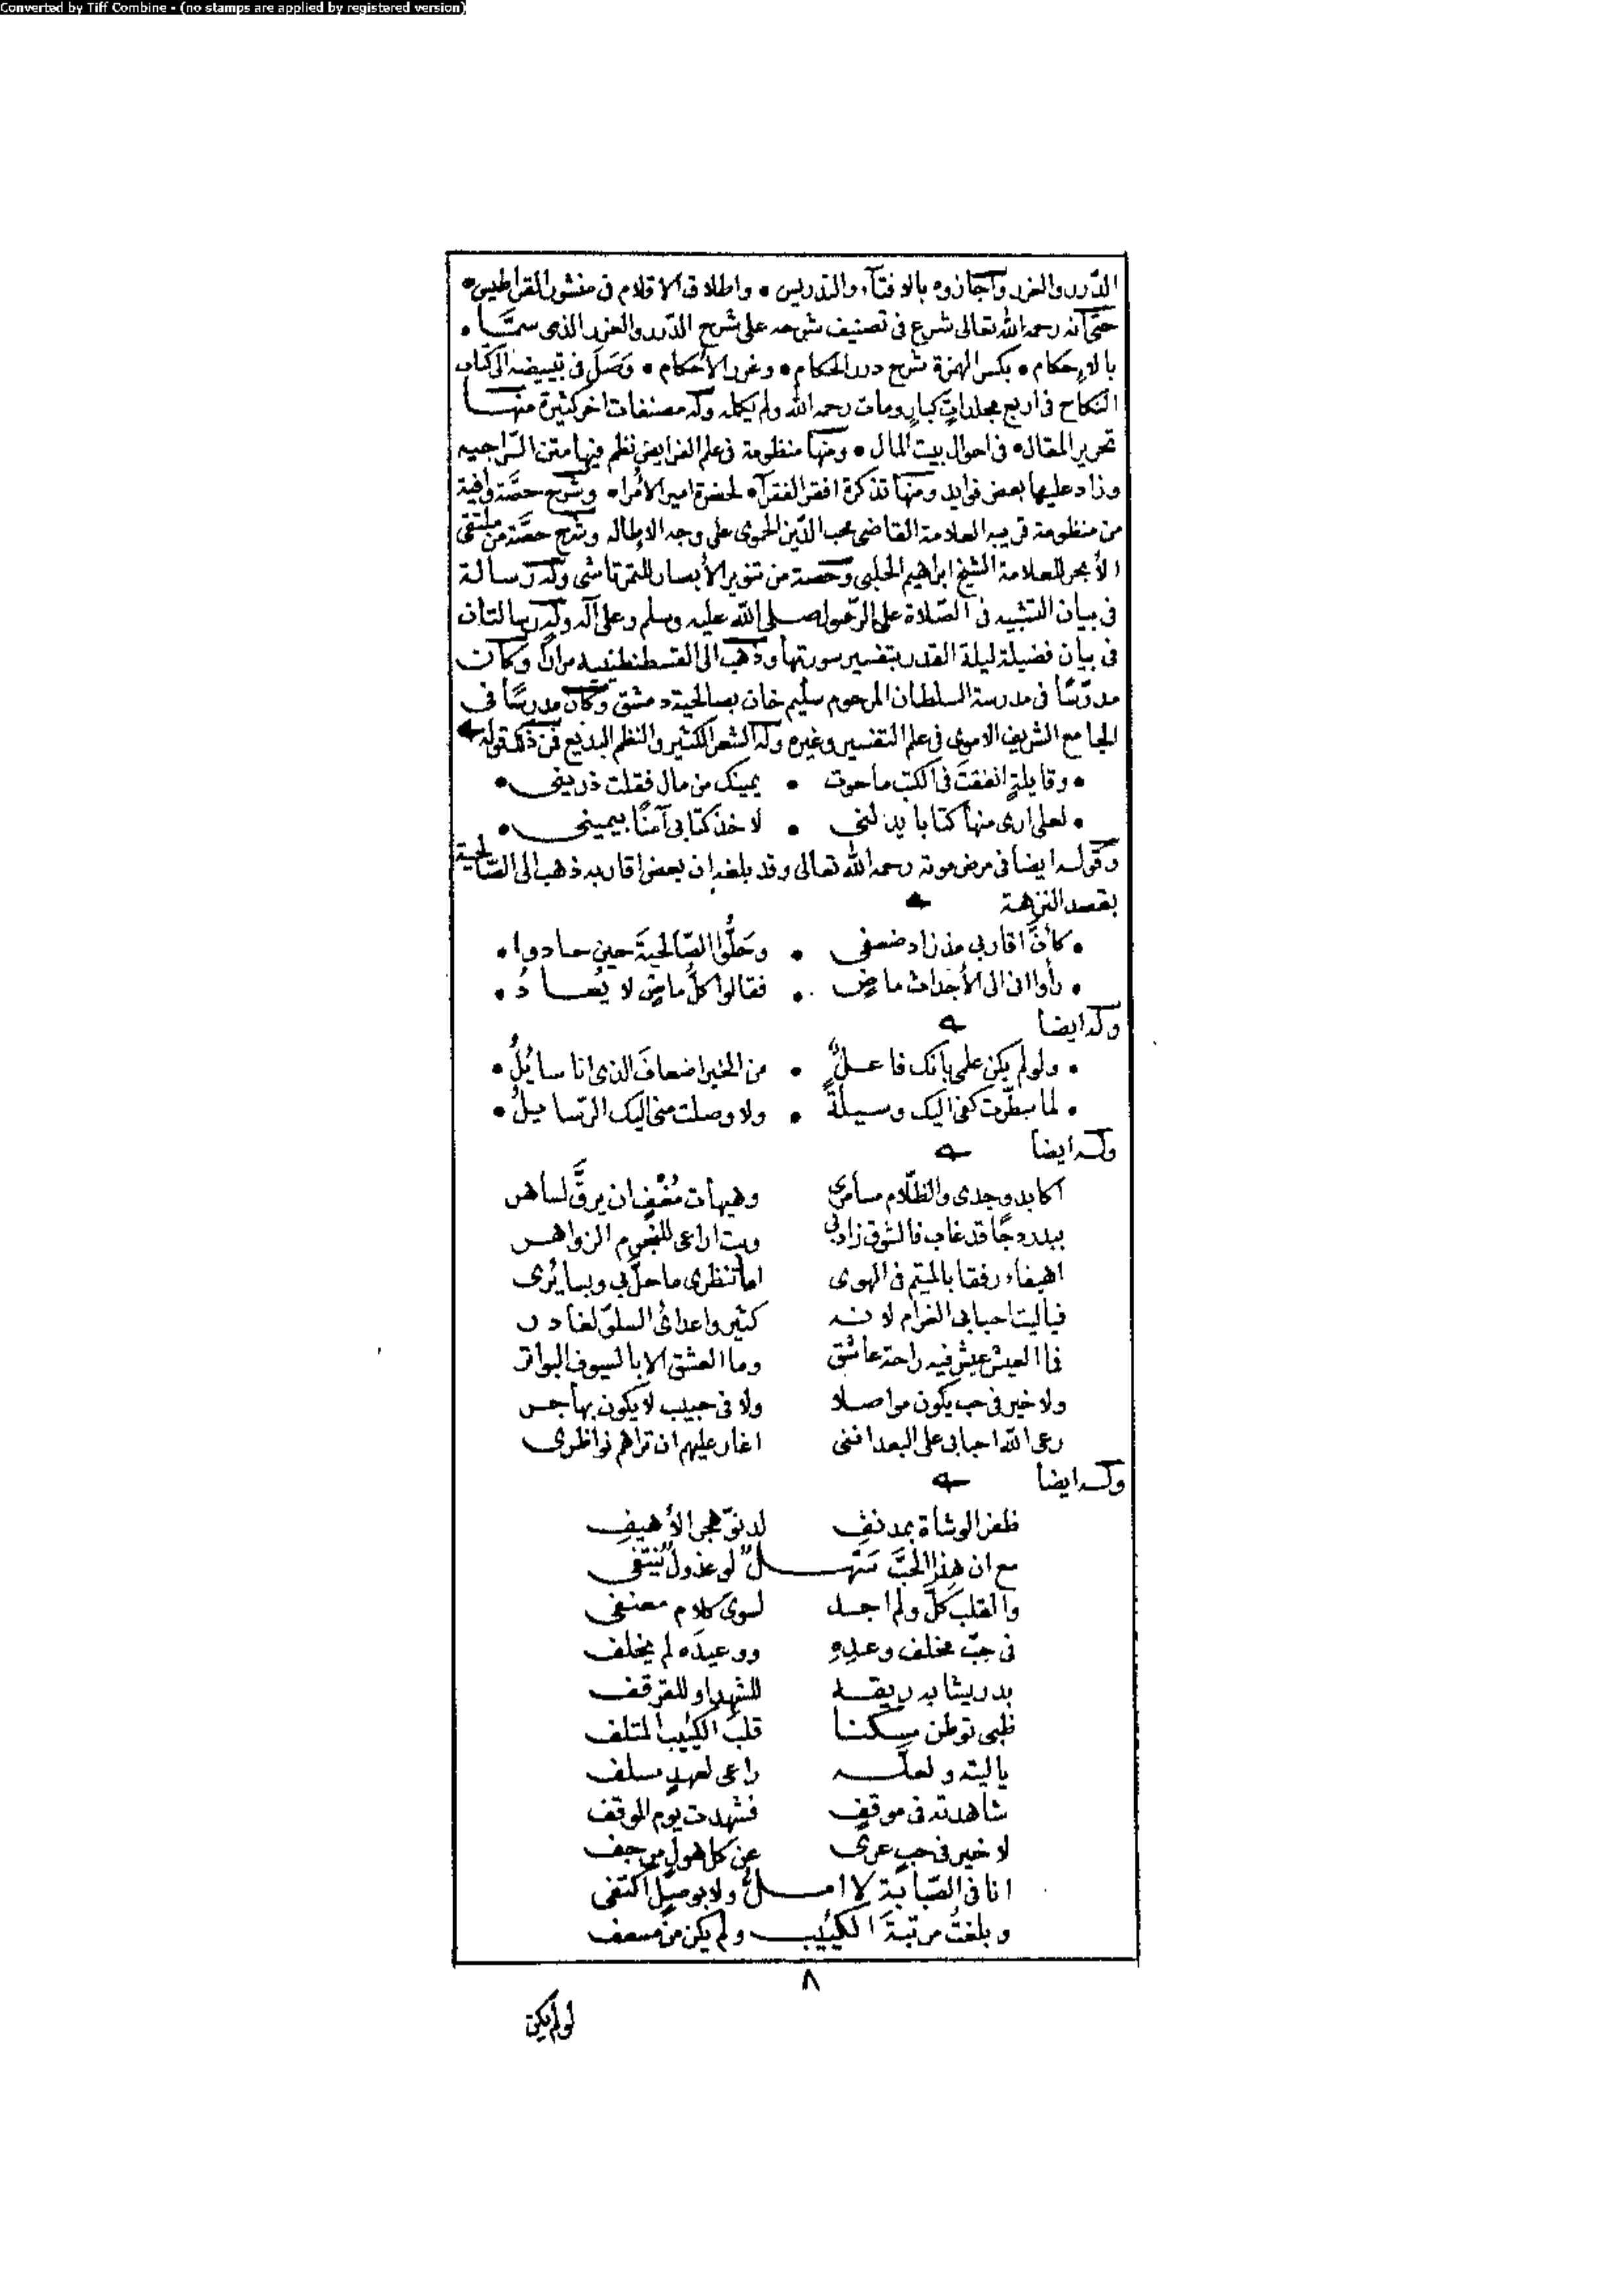 Converted by Tiff Combine - (no stamps are applied by registered version)
الدّرر والغرر وأجازوه بالافتآء والتدريس • واطلاق الاقلام فى منشور القراطيس •
حتى انه رحمه الله تعالى شرع فى تصنيف شرحه على شرح الدّرر والغرر الذى سمّـا •
بالاِحكام • بكسر الهمزة شرح درر الحكام • وغرر الأحكام • وَصَلَ فى تبييضه الى كتاب
النكاح فى اربع مجلداتٍ كبار ومات رحمه الله ولم يكمله وله مصنفات اخر كثيرة منهـا
تحرير المقال • فى احوال بيت المال • ومنها منظومة فى علم الفرايض نظم فيها متن السّراجيه
وزاد عليها بعض فوايد ومنها تذكرة افقر الفقرآء • لحضرة امير الأمرا • وشرح حصّة وافية
من منظومة قريبه العلامة القاضى محب الدّين الحموى على وجه الاطاله وشرح حصّة من ملتقى
الأبحر للعلامة الشيخ ابراهيم الحلبى وحصة من تنوير الأبصار للتمرتاشى وله رسالة
فى بيان التشبيه فى الصّلاة على الرّسول صلى الله عليه وسلم وعلى آله وله رسالتان
فى بيان فضيلة ليلة القدر بتفسير سورتها وذهب الى القسطنطنيه مرارًا وكان
مدرّسًا فى مدرسة السلطان المرحوم سليم خان بصالحية دمشق وكان مدرسًا فى
الجامع الشريف الاموى فى علم التفسير وغيره وله الشعر الكثير والنظم البديع فمن ذلك قوله
• وقايلةٍ انفقتَ فى الكتب ما حوت • يمينك من مال فقلت ذرينى •
• لعلى ارى منها كتابا يدلنى • لاخذ كتابى آمنًا بيمينى •
وقوله ايضا فى مرض موته رحمه الله تعالى وقد بلغه ان بعض اقاربه ذهب الى الصّالحية
بقصد النزهة
• كأنّ اقاربى مذ زاد ضعفى • وحَلُّوا الصّالحيةَ حين حادوا •
• رأوا انى الى الأجداث ماضٍ • فقالوا كلُّ ماضٍ لا يُعـادُ •
وله ايضا
• ولو لم يكن علمى بأنك فاعـلٌ • من الخير اضعافَ الذى انا سائلُ •
• لما سطّرت كفى اليك وسيلةً • ولا وصلت منى اليك الرّسايلُ •
وله ايضا
اكابد وجدى والظّلام مسامرى وهيهات مُغْفٍ ان يرقَّ لساهر
ببدر دجًا قد غاب فالشوق زادبى وبت اراعى للنجوم الزواهر
اهيفاء رفقا بالمتيم فى الهوى اما تنظرى ما حلّ بى وبسايرى
فياليت احبابى الغرام لانه كثير واعدائى السلوّ لغادر
فما العيش عيش فيه راحة عاشق وما العشق الا بالسيوف البواتر
ولا خير فى حب يكون مواصلا ولا فى حبيب لا يكون بهاجر
رعى الله احبابى على البعد اننى اغار عليهم ان تراهم نواظرى
وله ايضا
ظفر الوشاة بمدنفٍ لدنوّ هجر الأهيفِ
مع ان هذا الحبَّ سَهْـلٌ لو عذولٌ ينتفى
والقلب كلَّ ولم اجد لسوى كلام معنفى
فى حبّ مخلف وعدهِ ووعيدُه لم يخلف
بدر يشابه ريقه للشهد او للقرقف
ظبى توطن مسكنا قلبَ الكئيب المتلف
ياليته ولعله راعى لعهدٍ مسلف
شاهدته فى موقفٍ فشهدت يوم الموقف
لا خير فى حب عرى عن كل هولٍ مرجف
انا فى الصّبابة لا امـلُّ ولا بوصلٍ اكتفى
وبلغتُ مرتبةَ الكئيب ولم يكن من مسعف
٨
لو لم يكن